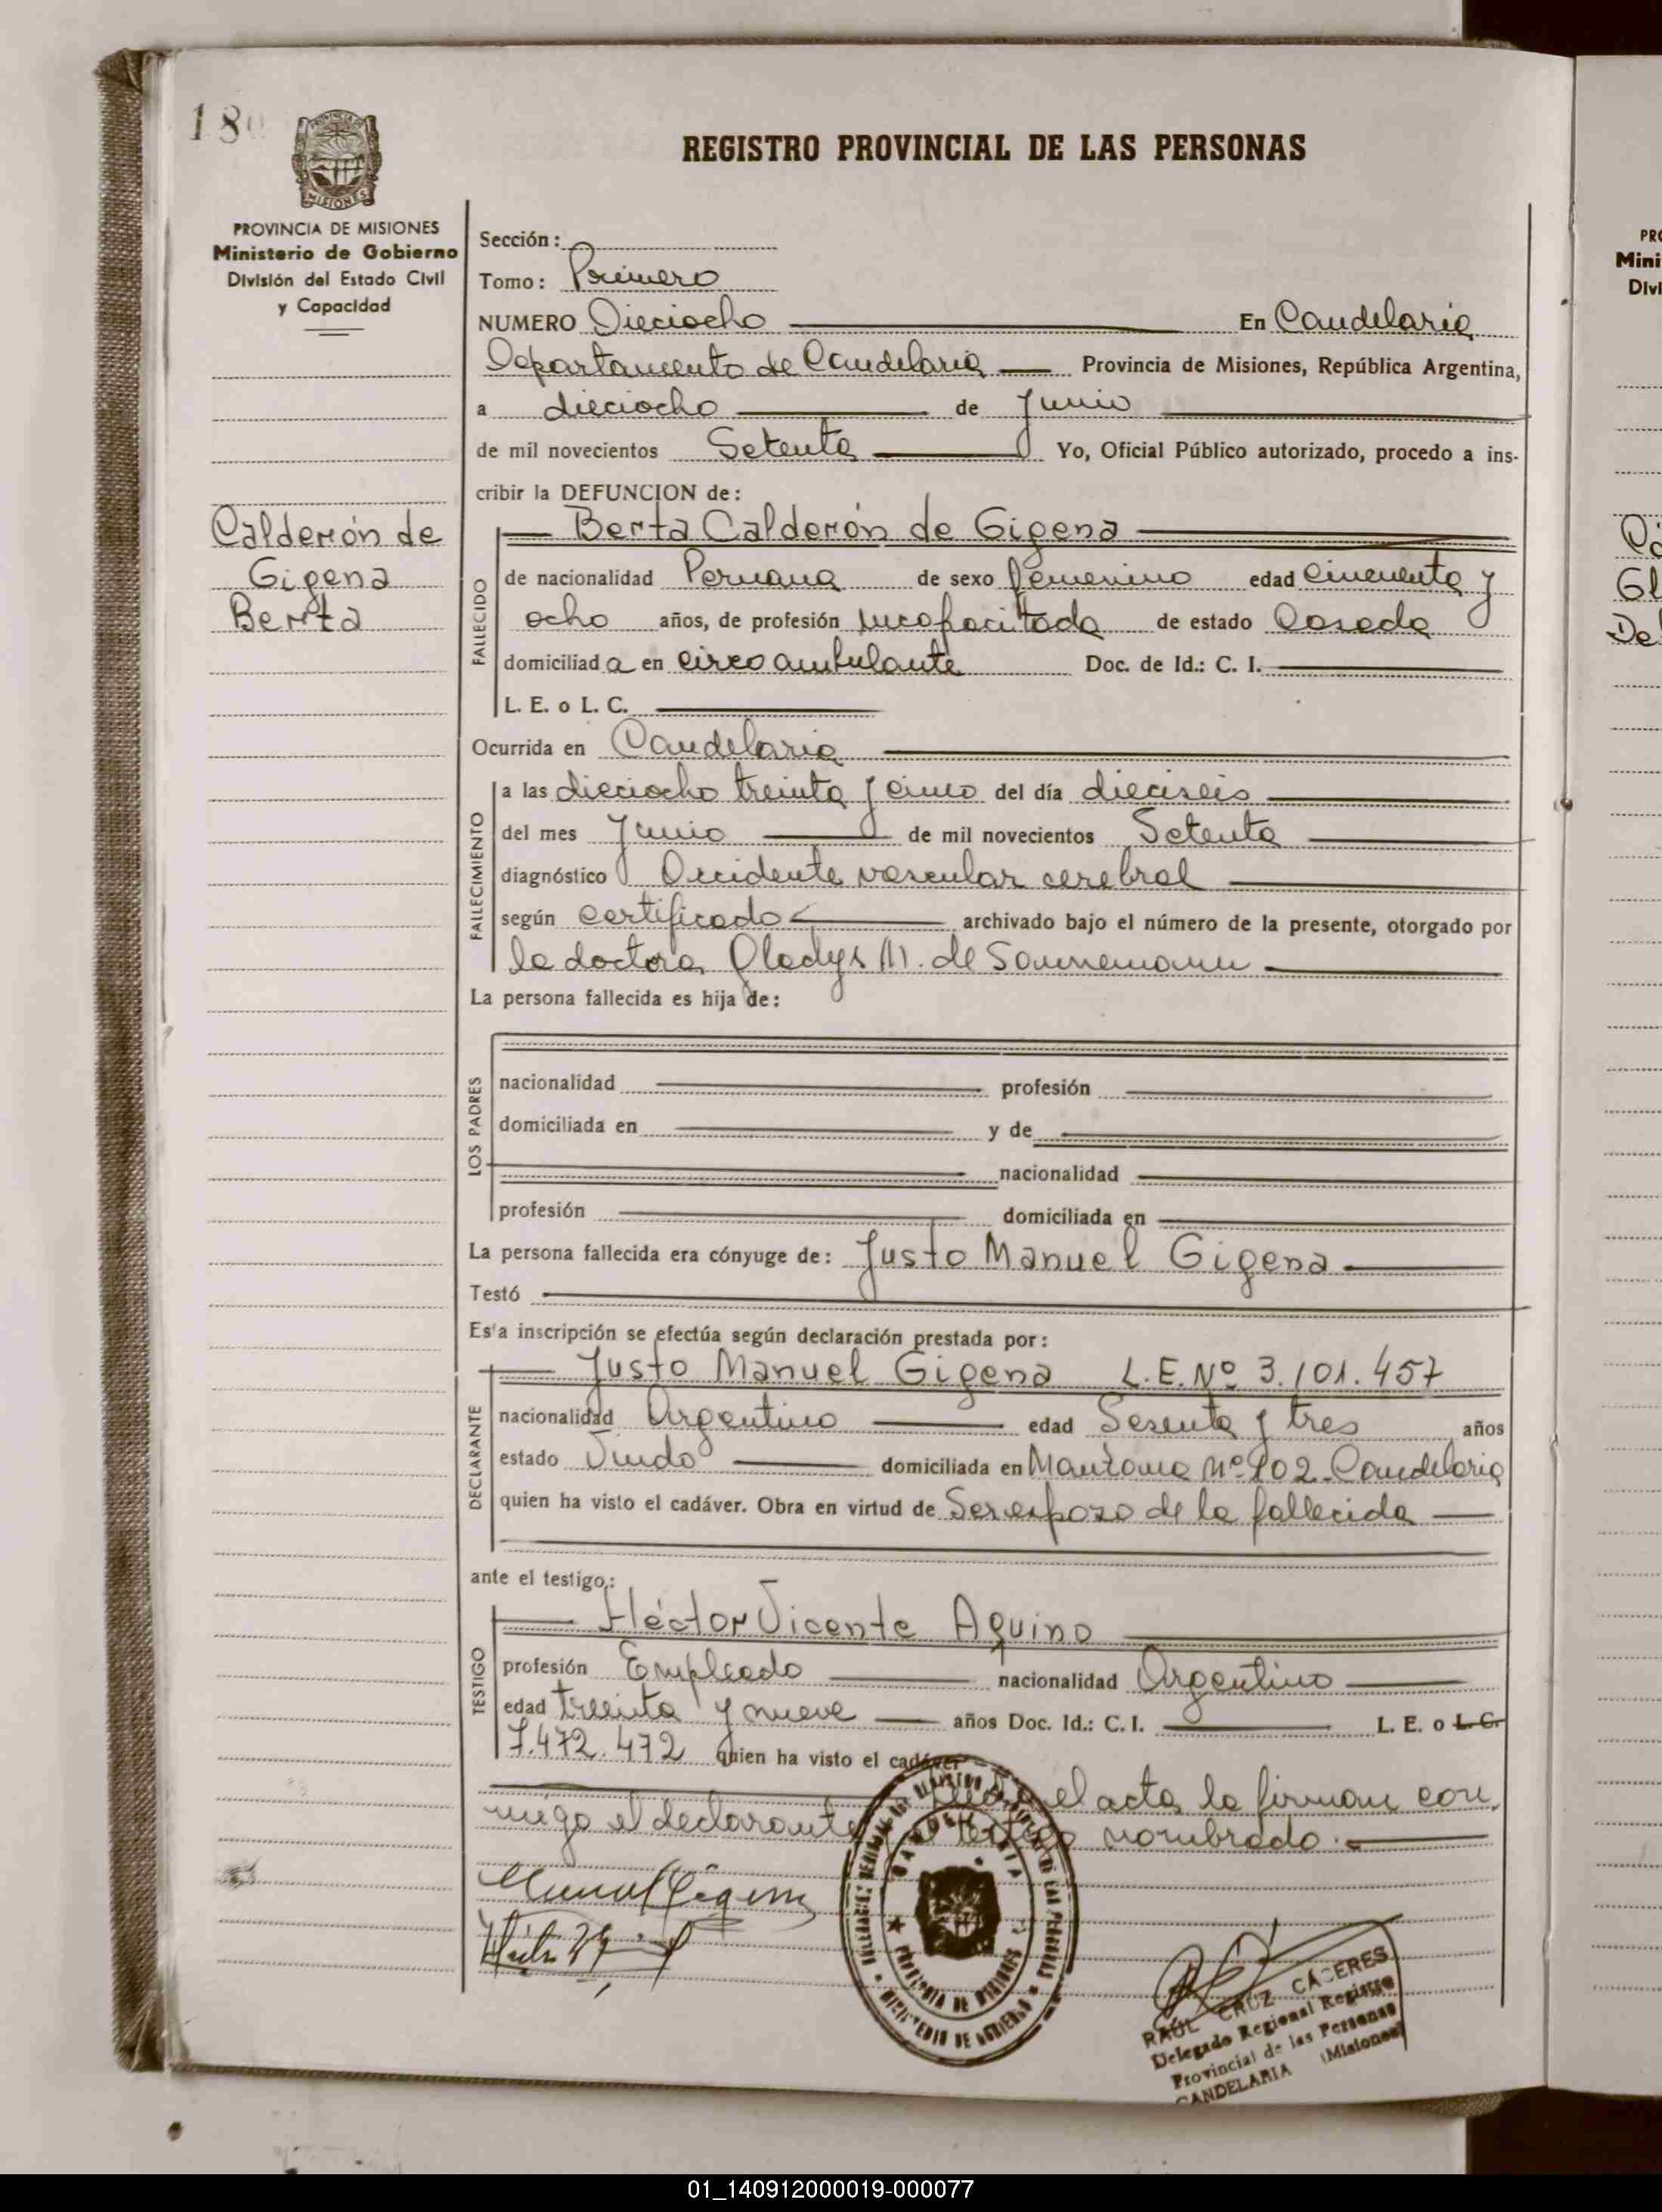 180
MISIONES
PROVINCIA DE MISIONES
Ministerio de Gobierno
División del Estado Civil
y Capacidad
REGISTRO PROVINCIAL DE LAS PERSONAS
Sección:
Tomo: Primero
NUMERO Dieciocho En Candelaria
Departamento de Candelaria Provincia de Misiones, República Argentina,
a dieciocho de Junio
de mil novecientos Setenta Yo, Oficial Público autorizado, procedo a ins-
cribir la DEFUNCION de:
Calderón de
Gigena
Berta
FALLECIDO
Berta Calderón de Gigena
de nacionalidad Peruana de sexo femenino edad cincuenta y
ocho años, de profesión incapacitada de estado Casada
domiciliada en circo ambulante Doc. de Id.: C. I.
L. E. o L. C.
Ocurrida en Candelaria
FALLECIMIENTO
a las dieciocho treinta y cinco del día dieciseis
del mes Junio de mil novecientos Setenta
diagnóstico Accidente vascular cerebral
según certificado archivado bajo el número de la presente, otorgado por
la doctora Gladys M. de Sannemann
La persona fallecida es hija de:
LOS PADRES
nacionalidad profesión
domiciliada en y de
nacionalidad
profesión domiciliada en
La persona fallecida era cónyuge de: Justo Manuel Gigena
Testó
Esta inscripción se efectúa según declaración prestada por:
DECLARANTE
Justo Manuel Gigena L.E. Nº 3.101.457
nacionalidad Argentino edad Sesenta y tres años
estado Viudo domiciliada en Manzana Nº 102 Candelaria
quien ha visto el cadáver. Obra en virtud de Ser espozo de la fallecida
ante el testigo:
TESTIGO
Héctor Vicente Aquino
profesión Empleado nacionalidad Argentino
edad treinta y nueve años Doc. Id.: C. I. L. E. o L. C.
7.472.472 quien ha visto el cadáver
el acta la firman con
migo el declarante y el testigo nombrado.
CANDELARIA
PROVINCIA DE MISIONES
MINISTERIO DE GOBIERNO
RAÚL CRUZ CÁCERES
Delegado Regional Registro
Provincial de las Personas
CANDELARIA (Misiones)
PRO
Mini
Divi
01_140912000019-000077